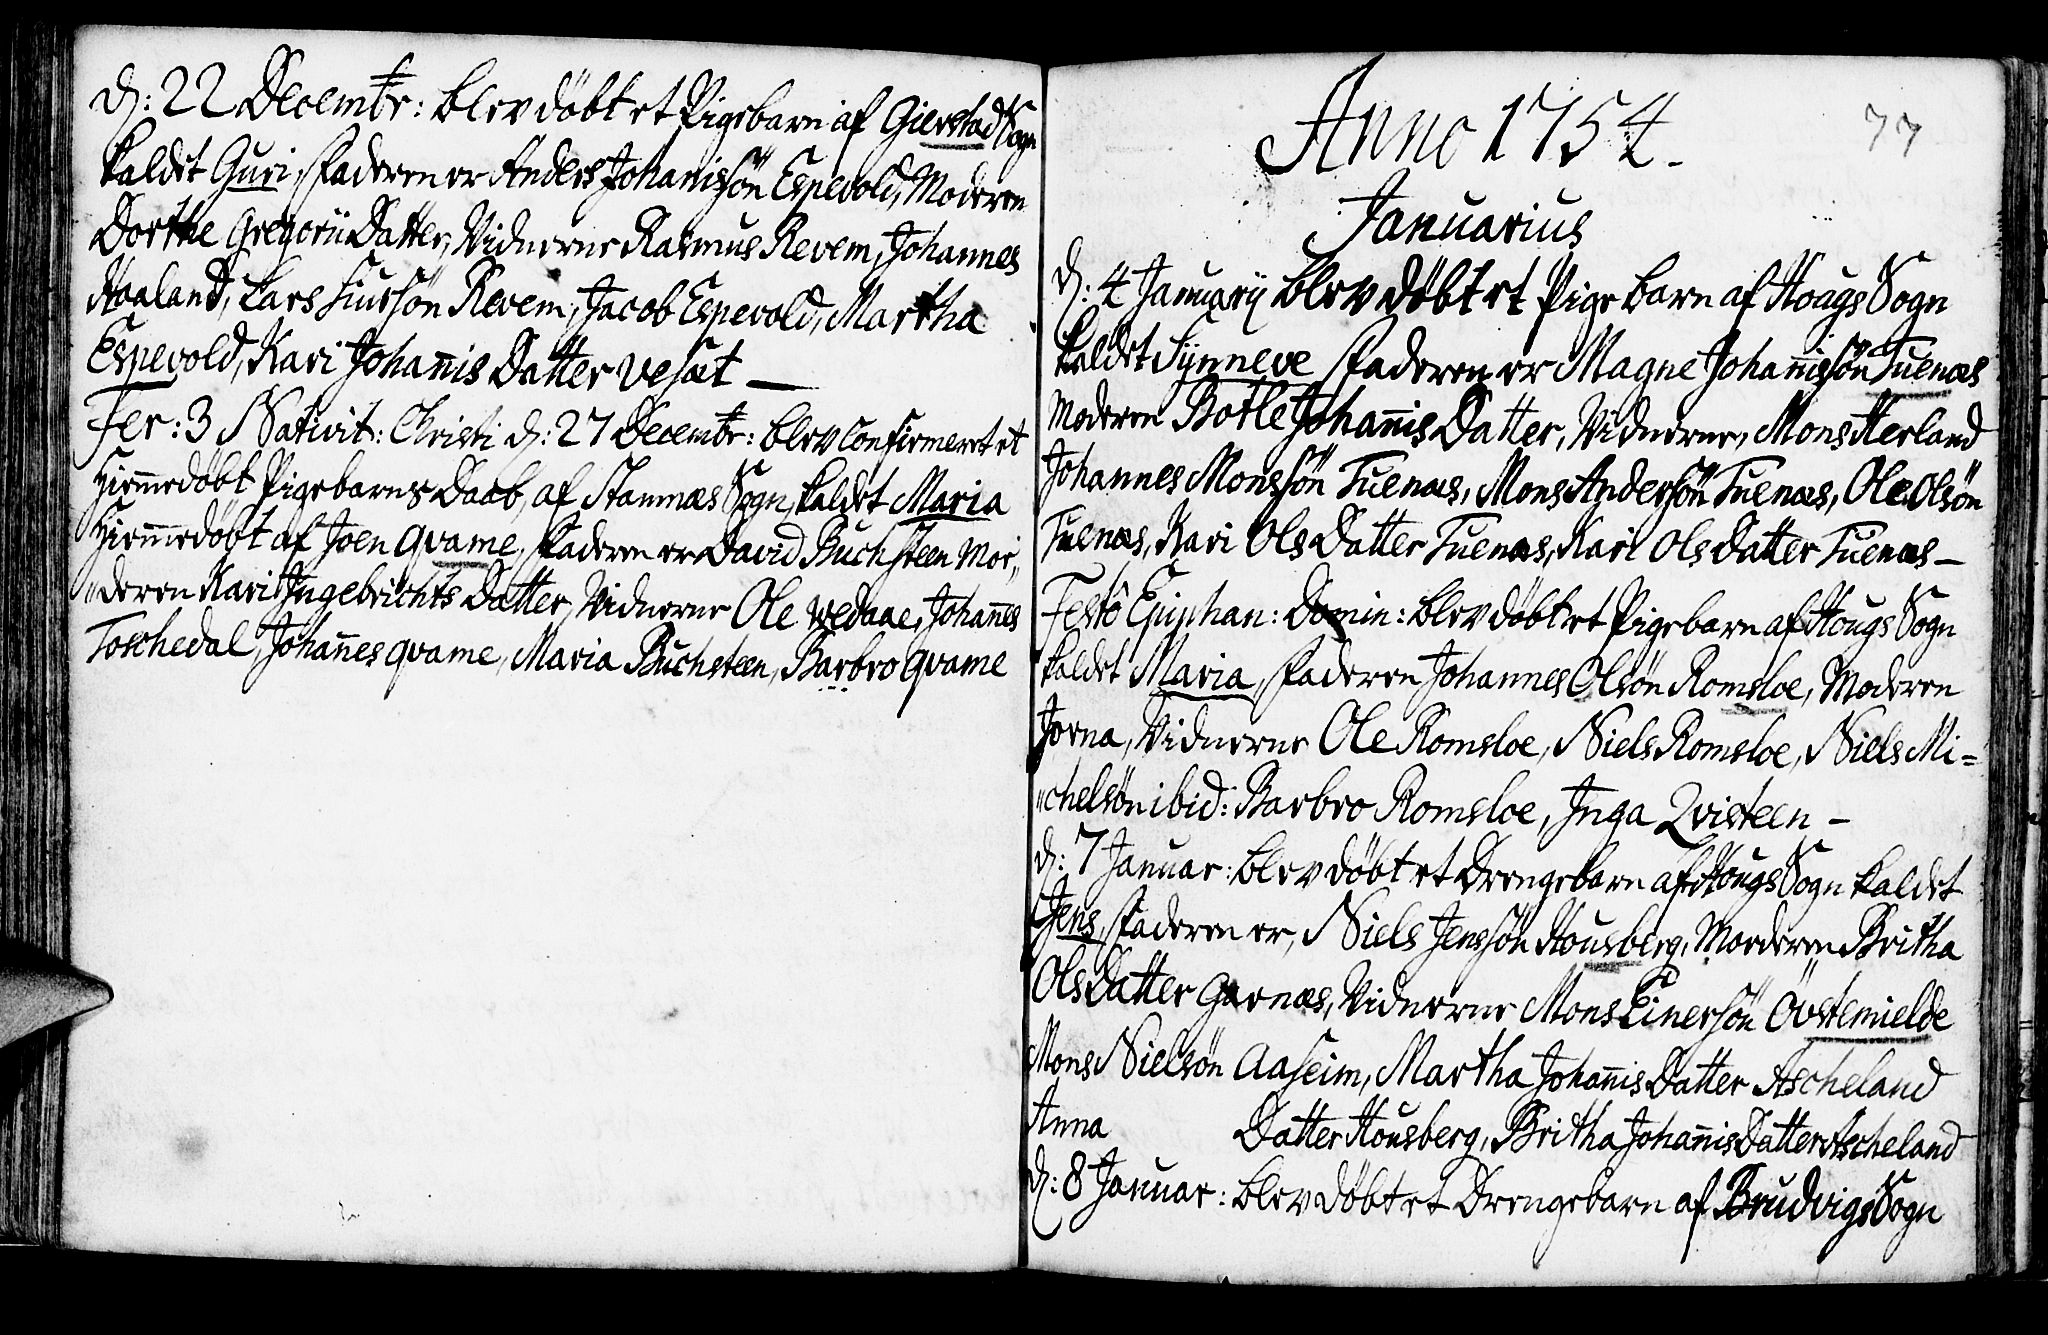 d: 22 Decembr: blev döbt et Pigebarn af Gierstad Sogn
kaldet Guri, Faderen er Anders Johanissön Espevold, Moderen
Dorthe Gregorii Datter, Vidnerne Rasmus Revem, Johannes
Haaland, Lars Siursön Revem, Jacob Espevold, Martha
Espevold, Kari Johanis Datter Vesæt —
Fer: 3 Nativit: Christi d: 27 Decembr: blev Confirmeret et
Hiem̄edöbt Pigebarns Daab, af Stamnæs Sogn, kaldet Maria
Hiem̄edöbt af Joen Qvame, Faderen er David Buchsteen Mo„
„deren Kari Ingebrichts Datter, Vidnerne Ole Vedaae, Johan̄es
Toschedal, Johan̄es Qvame, Maria Buchsteen, Barbro Qvame
77
Anno 1754.
Januarius
d: 4 Januarij blev döbt et Pige barn af Hougs Sogn
kaldet Synneve Faderen er Magne Johan̄issön Tuenæs
Moderen Botle Johan̄is Datter, Vidnerne, Mons Herland
Johannes Monssön Tuenæs, Mons Andersön Tuenæs, Ole Olsön
Tuenæs, Kari Ols Datter Tuenæs, Kari Ols Datter Tuenæs —
Festô Epiphan: Domin: blev döbt et Pigebarn af Hougs Sogn
kaldet Maria, Faderen Johannes Olsön Romsloe, Moderen
Jorna, Vidnerne Ole Romsloe, Niels Romsloe, Niels Mi=
„chelsön ibid: Barbro Romsloe, Inga Qvisteen —
d: 7 Januar: blev döbt et Drengebarn af Hougs Sogn kaldet
Jens, Faderen er, Niels Jenssön Housberg, Moderen Britha
Ols Datter Garnæs, Vidnerne Mons Einersön Övstemielde
Mons Nielsön Aaseim, Martha Johan̄is Datter Ascheland
Anna Datter Housberg, Britha Johan̄is Datter Ascheland
d: 8 Januar: blev döbt et Drengebarn af Brudvigs Sogn